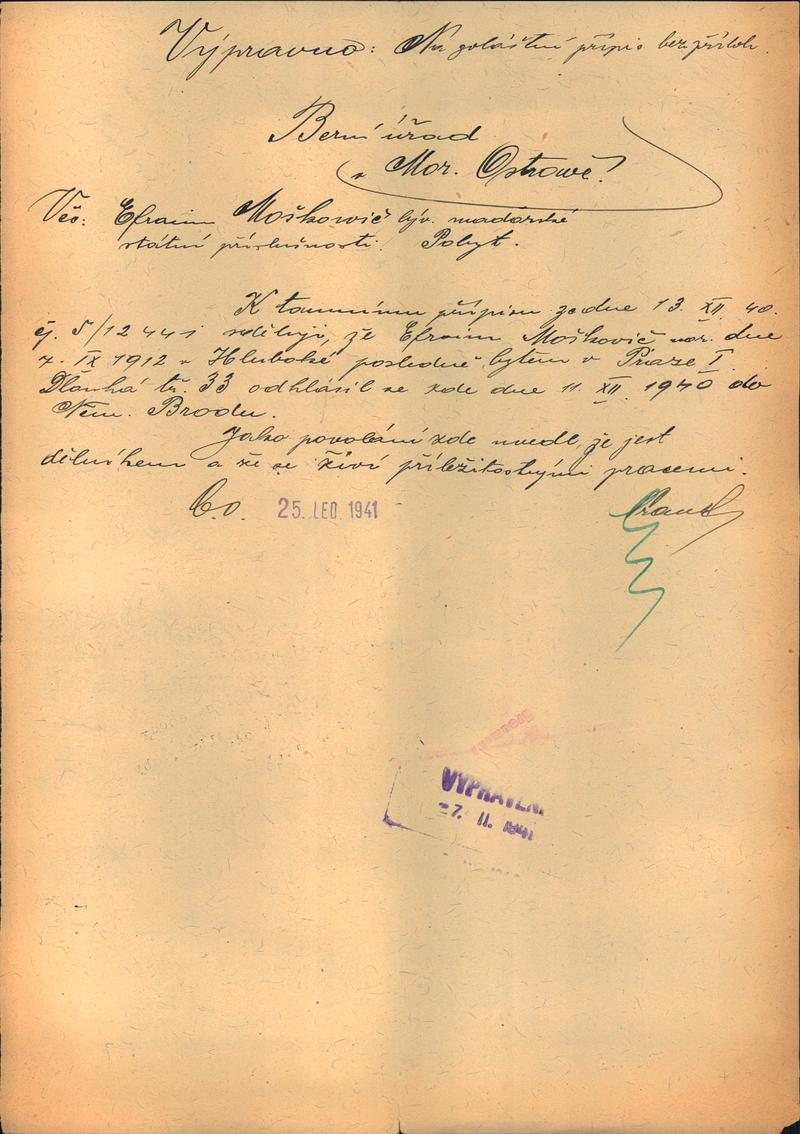 Výpravno: Na zvláštní přípis bez příloh.
Berní úřad
v Mor. Ostravě!
Věc: Efraim Moškovič býv. maďarské
státní příslušnosti. Pobyt.
K tamnímu přípisu ze dne 13. XII. 40.
čj. 5/12441 sděluji, že Efraim Moškovič nar. dne
7. IX 1912 v Hluboké posledně bytem v Praze I.
Dlouhá tř. 33 odhlásil se zde dne 11. XII. 1940 do
Něm. Brodu.
Jako povolání zde uvedl, že jest
dělníkem a že se živí příležitostnými pracemi.
25. LED. 1941
VYPRAVENO
-7. II. 1941